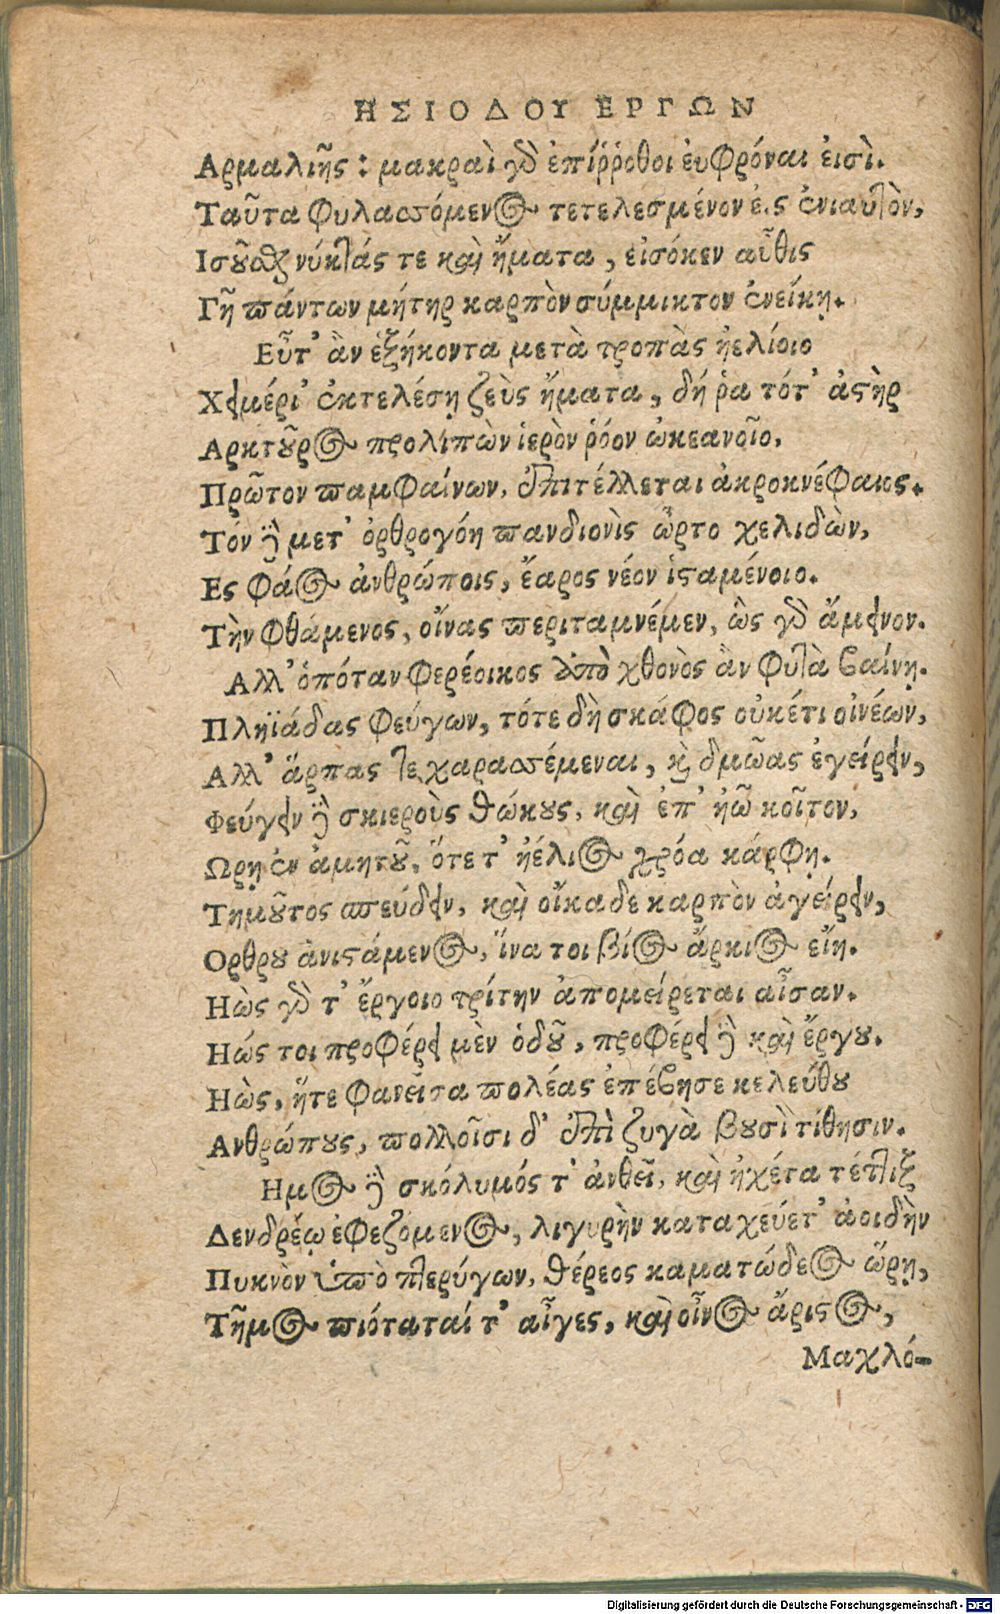 ΗΣΙΟΔΟΥ ΕΡΓΩΝ
Αρμαλιῆς : μακραὶ γὸ ἐπίῤῥοθοι ἐυφρόναι ἐισὶ.
Ταῦτα φυλαασόμενος τετελεσμένον ἐις ἐνιαυτὸν,
Ισοῦσθαι νύκτάς τε καὶ ἤματα, εἰσόκεν αὖθις
Γῆ πάντων μήτηρ καρπὸν σύμμικτον ἐνείκῃ.
Εὖτ' ἂν ἑξήκοντα μετὰ τροπὰς ἠελίοιο
Χειμέρι' ἐκτελέσῃ ζεὺς ἤματα, δή ῥα τότ' ἀστὴρ
Αρκτοῦρος προλιπὼν ἱερὸν ῥόον ὠκεανοῖο,
Πρῶτον παμφαίνων, ἐπιτέλλεται ἀκροκνέφαιος.
Τόν δὲ μετ' ὀρθρογόη πανδιονὶς ὦρτο χελιδὼν,
Ες φάος ἀνθρώποις, ἔαρος νέον ἱσταμένοιο.
Τὴν φθάμενος, οἴνας περιταμνέμεν, ὣς γὸ ἄμεινον.
Αλλ' ὁπόταν φερέοικος ἀπὸ χθονὸς ἂν φυτὰ βαίνῃ.
Πληϊάδας φεύγων, τότε δὴ σκάφος οὐκέτι οἰνέων,
Αλλ' ἅρπας τε χαρασσέμεναι, καὶ δμῶας ἐγείρειν,
Φεύγειν δὲ σκιεροὺς θώκους, καὶ ἐπ' ἠῶ κοῖτον,
Ωρῃ ἐν ἀμητοῦ, ὅτε τ' ἠέλιος χρόα κάρφῃ.
Τημοῦτος σπεύδειν, καὶ οἴκαδε καρπὸν ἀγείρειν,
Ορθρου ἀνιστάμενος, ἵνα τοι βίος ἄρκιος εἴη.
Ηὼς γὸ τ' ἔργοιο τρίτην ἀπομείρεται αἶσαν.
Ηώς τοι προφέρει μὲν ὁδοῦ, προφέρει δὲ καὶ ἔργου.
Ηὼς, ἥτε φανεῖσα πολέας ἐπέβησε κελεύθου
Ανθρώπους, πολλοῖσι δ' ἐπὶ ζυγὰ βουσὶ τίθησιν.
Ημος δὲ σκόλυμός τ' ἀνθεῖ, καὶ ἠχέτα τέττιξ
Δενδρέῳ ἐφεζόμενος, λιγυρὴν καταχεύετ' ἀοιδὴν
Πυκνὸν ὑπὸ πτερύγων, θέρεος καματώδεος ὥρῃ,
Τῆμος πιόταταί τ' αἶγες, καὶ οἶνος ἄριστος,
Μαχλό-
Digitalisierung gefördert durch die Deutsche Forschungsgemeinschaft - DFG